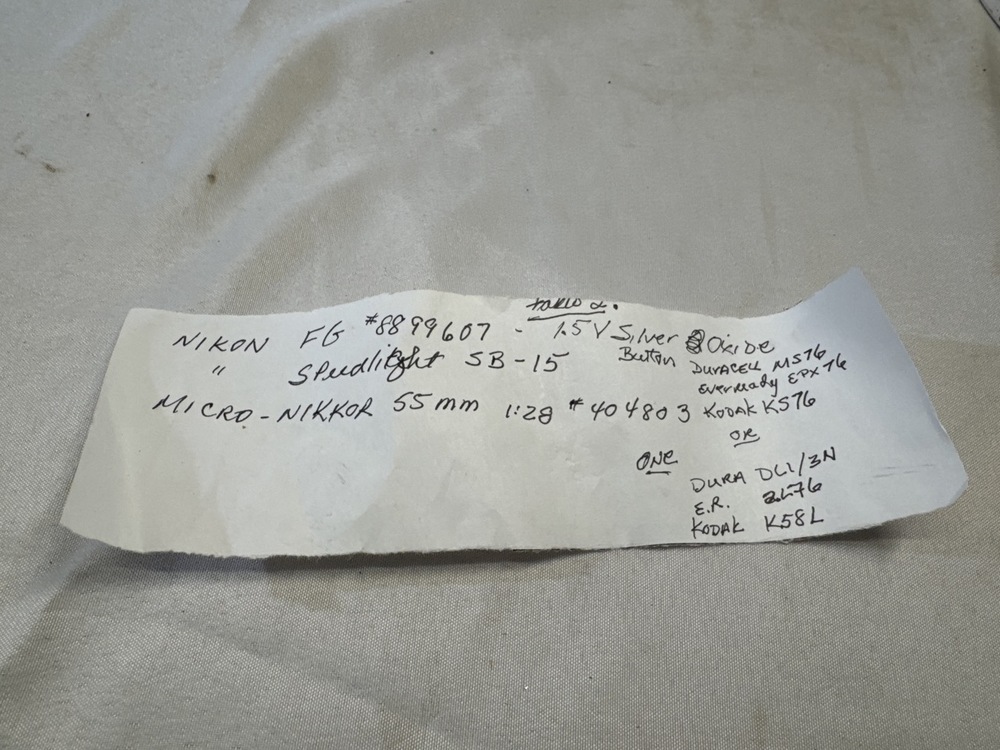 NIKON FG #8899607 - 1.5V Silver Oxide
Button
" Speedlight SB-15
DURACELL MS76
Eveready EPX76
MICRO-NIKKOR 55mm 1:28 #404803 KODAK KS76
OR
ONE
DURA DL1/3N
E.R. 2L76
KODAK K58L